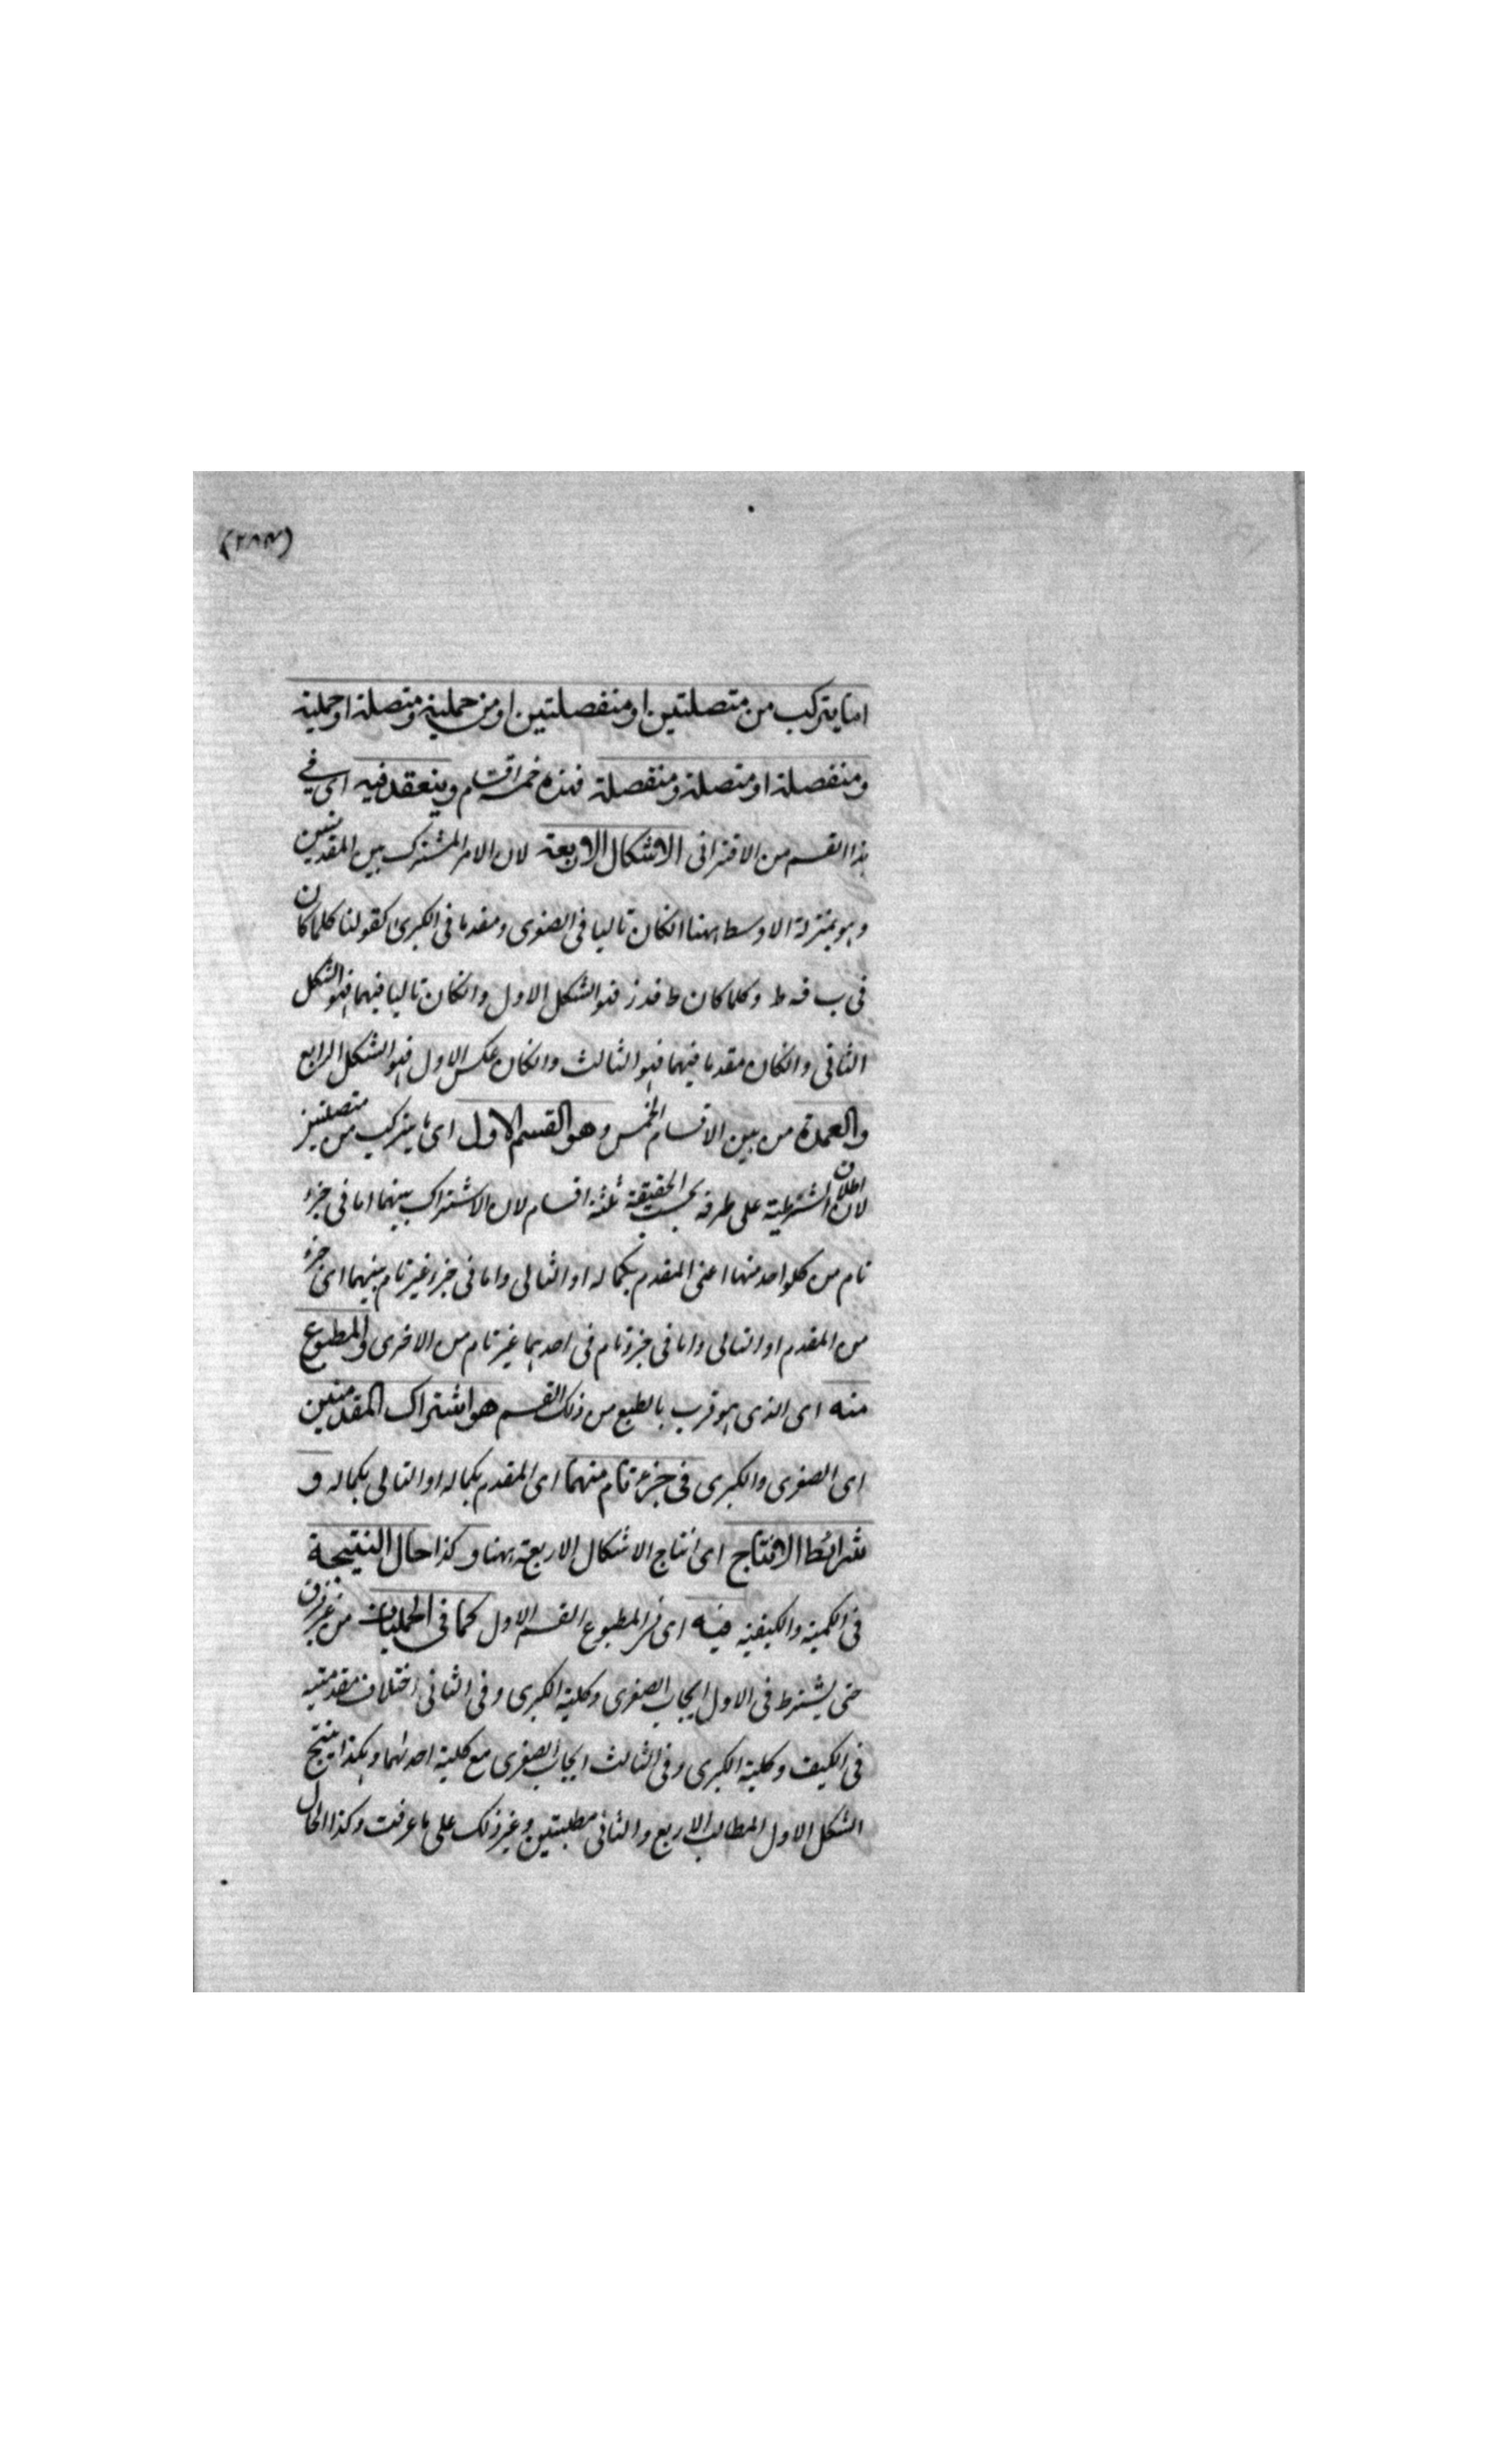 (٢٨٣)
اما يتركب من متصلتين او منفصلتين او من حملية و متصلة او حملية
و منفصلة او متصلة و منفصلة فهذه خمسة اقسام و ينعقد فيه اى فى
هذا القسم من الاقترانى الاشكال الاربعة لان الامر المشترك بين المقدمتين
و هو بمنزلة الاوسط ههنا انكان تاليا فى الصغرى و مقدما فى الكبرى كقولنا كلما كان
فى ب فه ط و كلما كان ط فدز فهو الشكل الاول و انكان تاليا فيهما فهو الشكل
الثانى و انكان مقدما فيهما فهو الثالث و انكان عكس الاول فهو الشكل الرابع
و العمدة من بين الاقسام الخمس و هو القسم الاول اى ما يتركب من متصلتين
لان اطلاق الشرطية على طرفه بحسب الحقيقة ثلثة اقسام لان الاشتراك بينهما اما فى جزء
تام من كلواحد منهما اعنى المقدم بكماله او التالى و اما فى جزء غير تام بينهما اى جزء
من المقدم او التالى و اما فى جزء تام فى احدهما غير تام من الاخرى و المطبوع
منه اى الذى هو قرب بالطبع من ذلك القسم هو اشتراك المقدمتين
اى الصغرى و الكبرى فى جزء تام منهما اى المقدم بكماله او التالى بكماله و
شرائط الانتاج اى انتاج الاشكال الاربعة ههنا و كذا حال النتيجة
فى الكمية و الكيفية فيه اى فى المطبوع القسم الاول كما فى الحمليات من غير فرق
حتى يشترط فى الاول ايجاب الصغرى و كلية الكبرى و فى الثانى اختلاف مقدمتيه
فى الكيف و كلية الكبرى و فى الثالث ايجاب الصغرى مع كلية احدلهما و هكذا ينتج
الشكل الاول المطالب الاربع و الثانى مطلبتين و غير ذلك على ما عرفت و كذا الحال